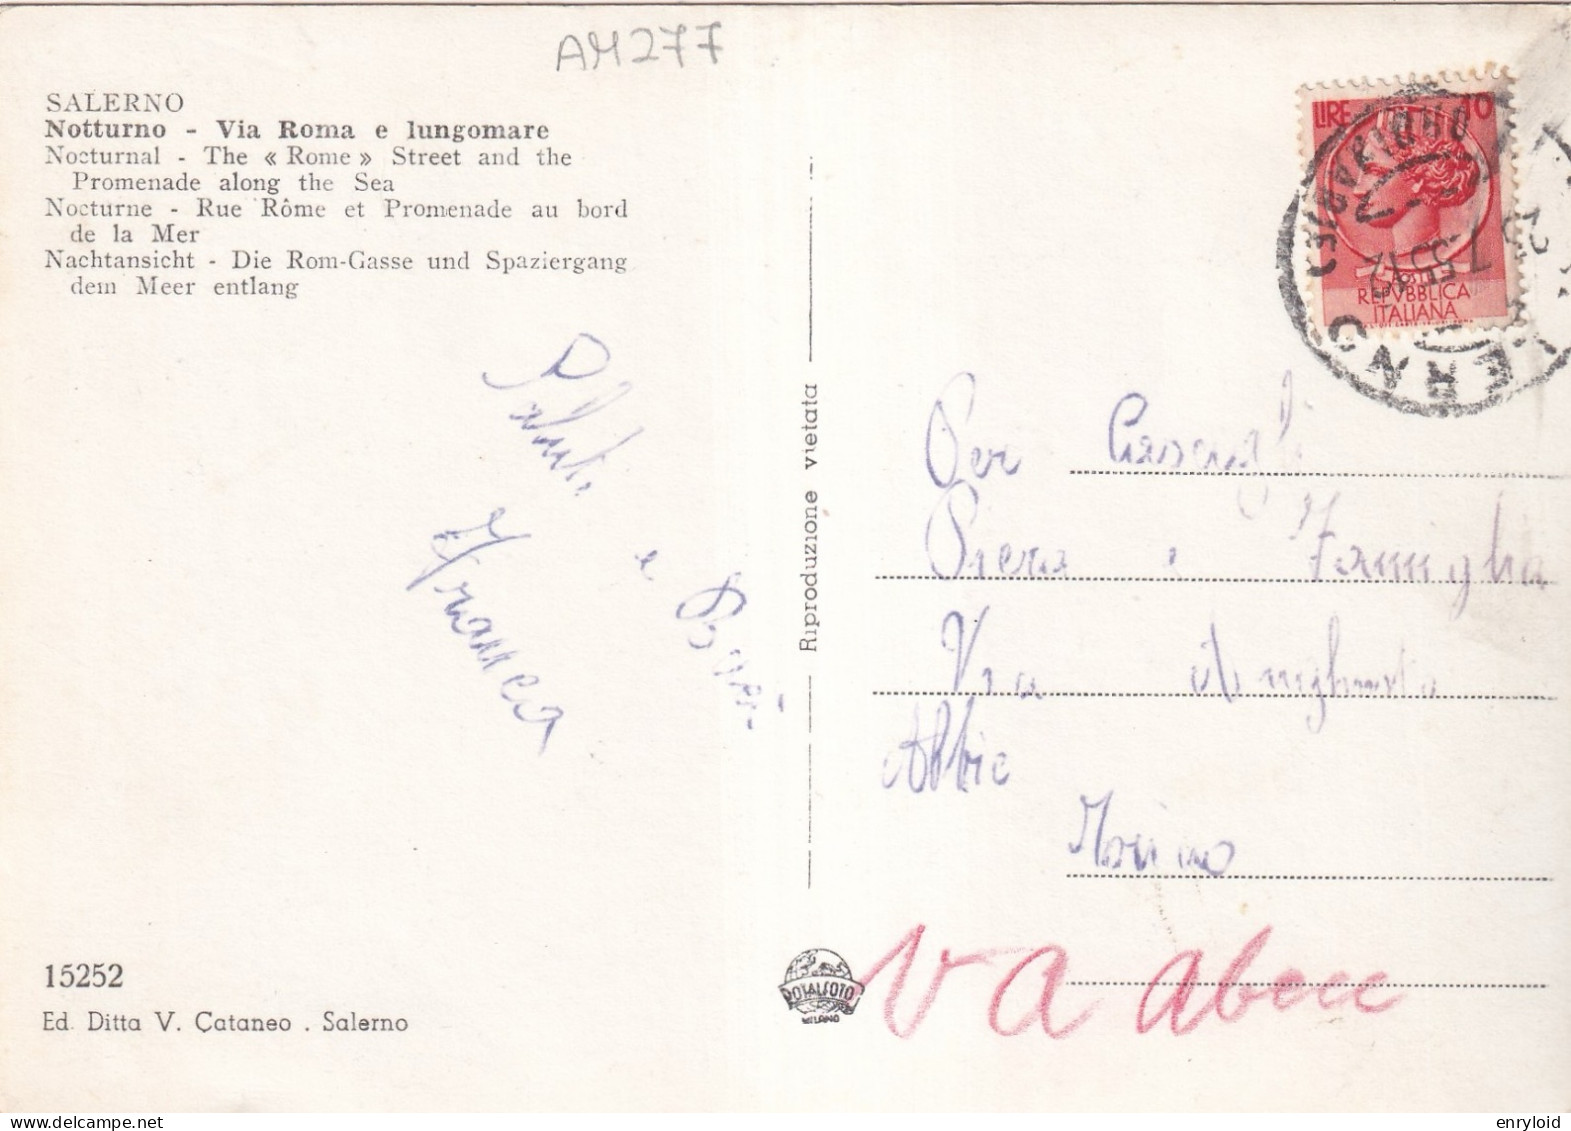 AM277
SALERNO
Notturno - Via Roma e lungomare
Nocturnal - The « Rome » Street and the
Promenade along the Sea
Nocturne - Rue Rôme et Promenade au bord
de la Mer
Nachtansicht - Die Rom-Gasse und Spaziergang
dem Meer entlang
Saluti
e Baci
Franca
15252
Ed. Ditta V. Cataneo . Salerno
Riproduzione vietata
ROTALFOTO
MILANO
LIRE 10
POSTE
REPVBBLICA
ITALIANA
Per
Piera e Famiglia
Via
Torino